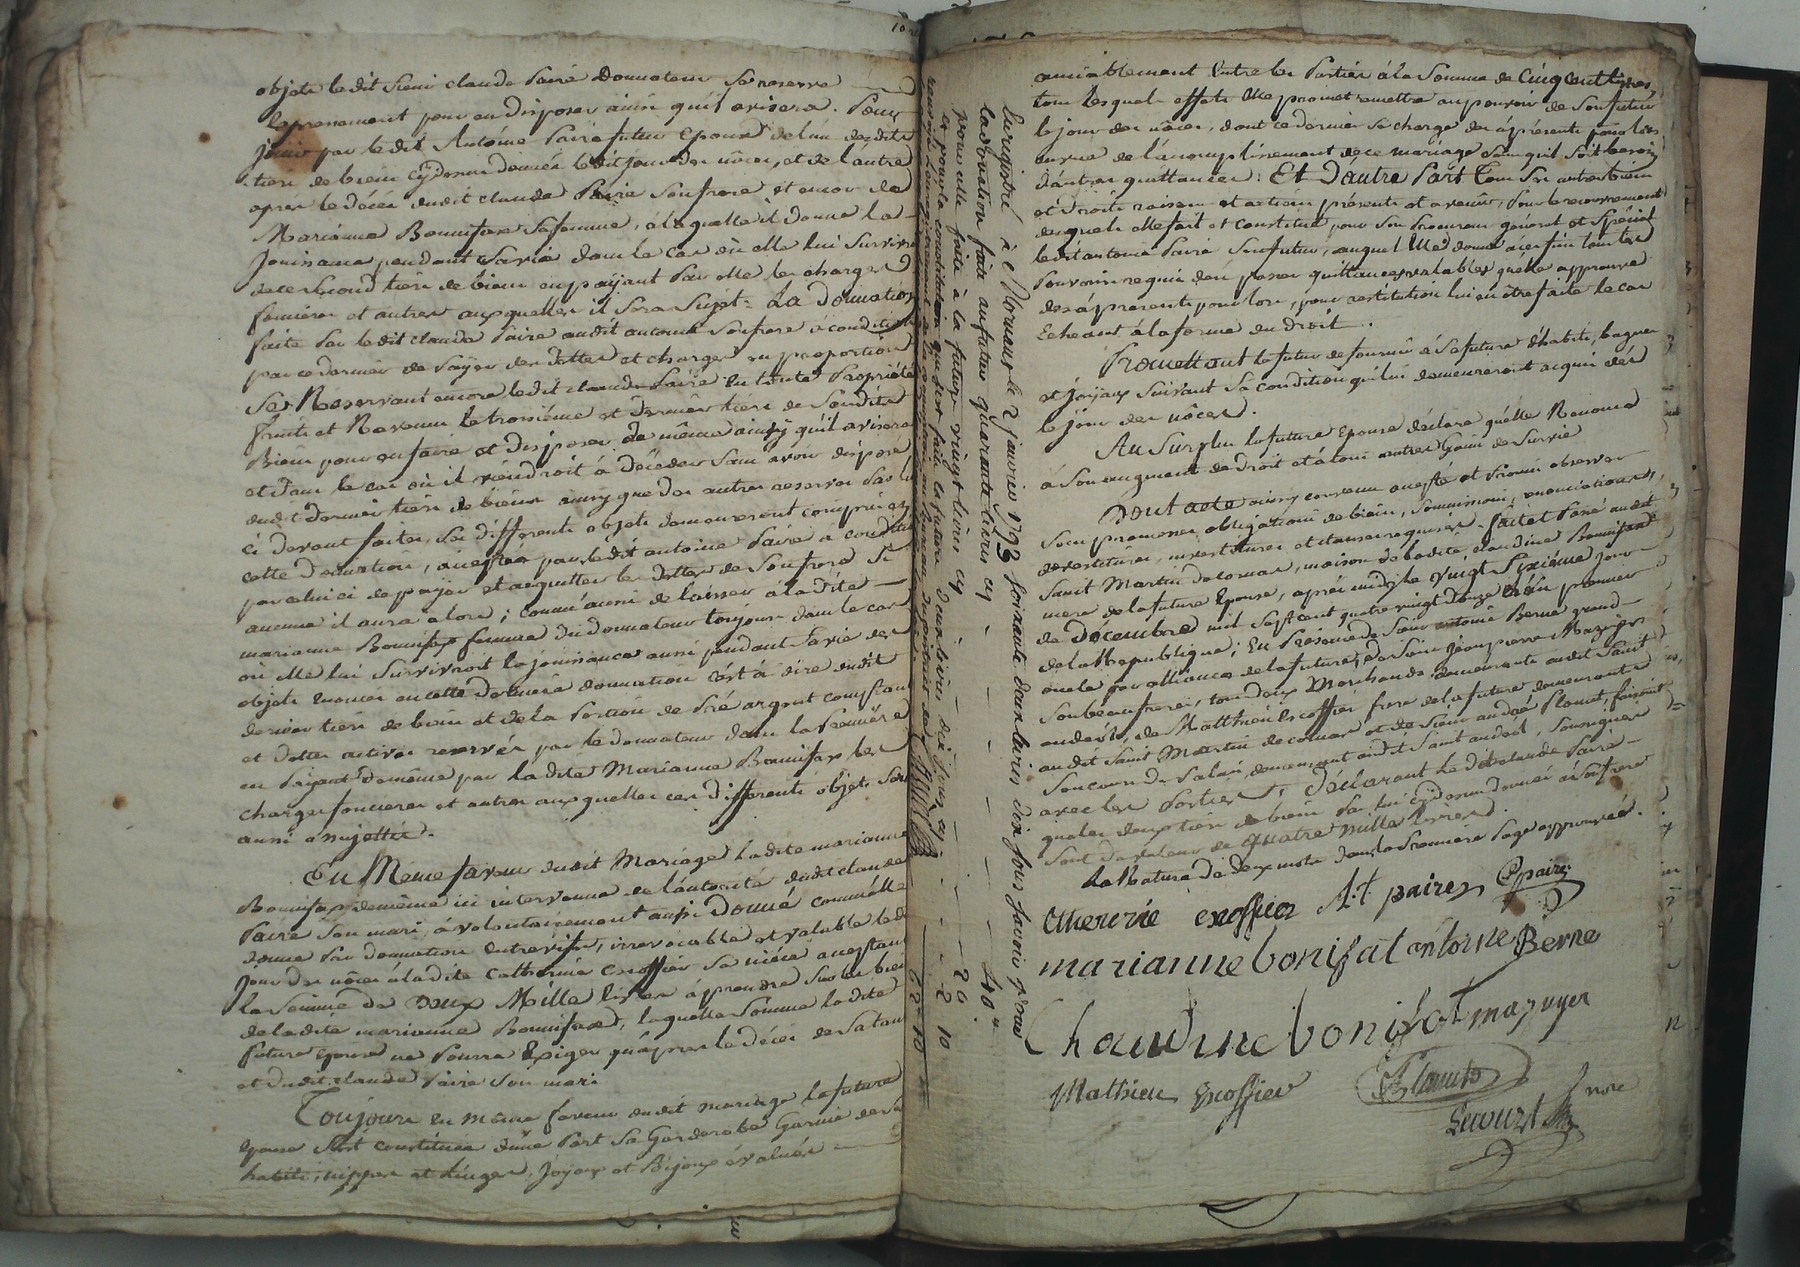 objets le dit sieur claude Pairé Donnateur se reserve
expressement pour en disposer ainsi qu'il avisera. Pour
jouir par le dit Antoine Pairé futur Epoux de l'un desdits
tiers de biens cy dessus donnés le dit jour des nôces, et de l'autre
apres le décés dudit claude Pairé son frere et encor de
Marianne Bonnifax sa femme, à laquelle il donne la
jouissance pendant sa vie dans le cas où elle lui Surviv
de ce second tiers de biens en payant par elle les charges
foncieres et autres auxquelles il sera Sujet. La Donnation
faite par le dit claude Pairé audit antoine son frere à condition
par ce dernier de payer des dettes et charges en proportion
Se Réservant encore le dit claude Pairé en toute Propriété
fruits et Revenus le troisième et dernier tiers de sesdits
Biens pour en faire et disposer de même ainsy qu'il avisera
et dans le cas où il viendroit à décéder sans avoir disposé
dudit dernier tiers de biens ainsy que des autres reserves par lui
ci devant faites, ses différents objets demeureront compris en
cette donnation, acceptée par le dit antoine Pairé à condition
par celui ci de payer et acquitter les dettes de son frere si
aucunes il aura alors; comm'aussi de laisser à la dite
marianne Bonnifax femme du donnateur toujours dans le cas
où elle lui survivroit la jouissance aussi pendant sa vie des
objets énoncés en cette derniere donnation c'est à dire dudit
dernier tiers de biens et de la portion de Pré argent comptant
et dettes actives reservés par le donnateur dans la Premiére
en Paiant de même par la dite Marianne Bonnifax les
charges foncieres et autres auxquelles ces différents objets sont
aussi assujettis.
En Même faveur dudit Mariage la dite marianne
Bonnifax de même ici intervenue de l'autorité dudit claude
Pairé son mari, à volontairement aussi Donné comm'elle
donne par donnation entrevifs, irrevocable et valable le dit
jour des nôces à la dite Catherine Escoffier sa niéce acceptant
la somme de Deux Mille livres à prendre sur les biens
de la dite marianne Bonnifax, laquelle somme la dite
future épouse ne pourra Exiger qu'après le décés de sa tante
et dudit claude Pairé son mari
Toujours en même faveur dudit mariage la future
épouse s'est constituée d'une Part sa Garderobe Garnie de ses
habits, nippes et Linges, joyaux et Bijoux évalués
Enregistré à le 2 janvier 1793 soixante deux livres dix sous savoir pour
la donation faite au futur quarante livres cy 40"
pour celle faite à la future vingt livres cy 20
et pour la constitution que s'est faite la future deux livres dix sous cy 2 10
62 10
amiablement Entre les Parties à la Somme de Cinq Cent livres,
tous lesquels effets elle promet remettre au pouvoir de son futur
le jour des nôces, dont ce dernier se charge dès àprésent pour lors
en vue de l'accomplissement de ce mariage sans qu'il soit besoin
d'autres quittances; Et D'autre Part tous ses autres biens
et droits raisons et actions présents et avenir, pour le recouvrement
desquels elle fait et constitue pour son Procureur général et Spécial
le dit antoine Pairé son futur, auquel Elle donne à ces fins tous les
Pouvoirs requis d'en passer quittances valables qu'elle approuve
dès àprésent pour lors, pour restitution lui en être faite le cas
Echeant à la forme du droit.
Promettant le futur de fournir à sa future d'habits, bagues
et joyaux suivant sa condition qui lui demeureront acquis dès
le jour des nôces.
Au Surplus la future Epouse déclare qu'elle Renonce
à son augment de droit et à tous autres Gains de Survie
Dont acte ainsy convenu accepté et Promis observer
sous promesses obligations de biens, soummissions, renonciations,
et clauses requises. Fait et Passé audit
Saint Martin de cornas, maison de la dite Claudine Bonnifax
mere de la future Epouse, après midy le vingt Sixième jour
de Décembre mil sept cent quatre vingt douze L'an premier
de la Republique; En Présence de Sieur antoine Berne grand
oncle par alliance de la future, de Sieur jeanpierre Mazuyer
son beaufrere, tous deux Marchands demeurants audit Saint
andéol, de Matthieu Escoffier frere de la future demeurant
audit Saint Martin de cornas et de Sieur andré Planet, faisant
son cours de Palais, demeurant audit Saint andéol, soussignés
avec les Parties, Déclarant le dit claude Pairé
que les deux tiers de biens par lui cy dessus donnés à son frere
sont de valeur de Quatre Mille Livres.
La Rature de deux mots dans la premiere Page approuvée.
Catherine escoffier A. paires C paires
marianne bonifat antoine Berne
Chaudine bonifat mazuyer
Mathieu Escoffier Planet
Lecourt nore